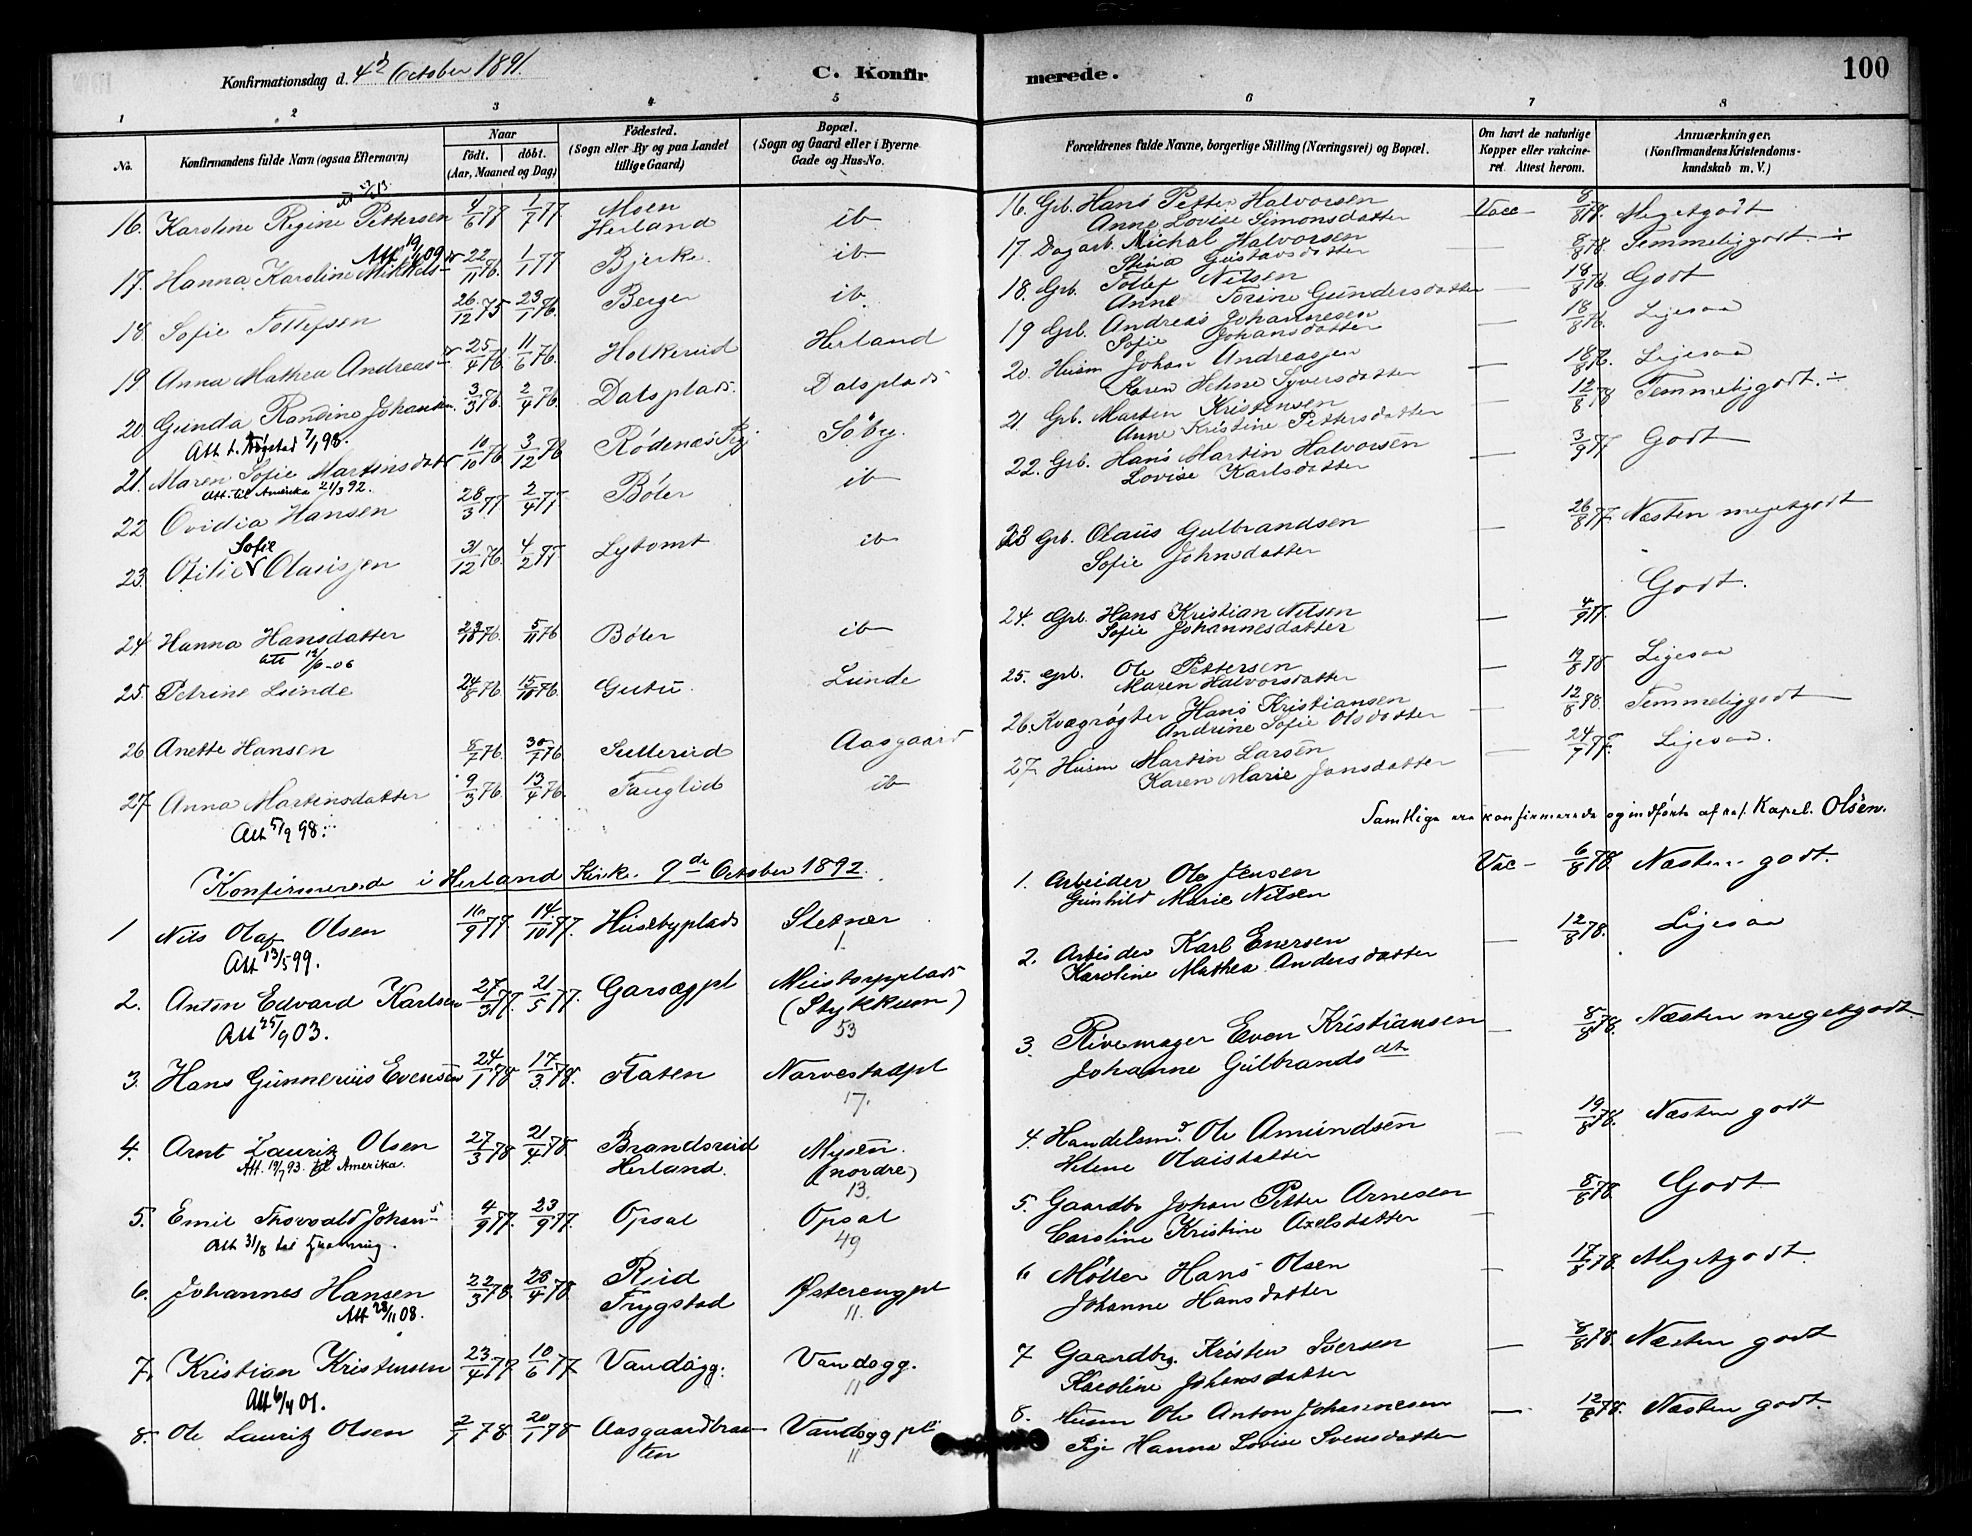 Konfirmationsdag d. 4d October 1891.
C. Konfirmerede.
100
1 2 3 4 5 6 7 8
No.
Konfirmandens fulde Navn (ogsaa Efternavn)
Naar
født. døbt.
(Aar, Maaned og Dag)
Fødested.
(Sogn eller By og paa Landet
tillige Gaard)
Bopæl.
(Sogn og Gaard eller i Byerne
Gade og Hus-No.
Forældrenes fulde Navne, borgerlige Stilling (Næringsvei) og Bopæl.
Om havt de naturlige
Kopper eller vakcine-
ret. Attest herom.
Anmærkninger.
(Konfirmandens Kristendoms-
kundskab m. V.)
16. Karoline Regine Pettersen 4/6 77 1/7 77 Moen Herland ib 16. Grb. Hans Petter Halvorsen Vacc 8/8 78. Megetgodt
Anne Lovise Simonsdatter
Att 19/1 09
17. Hanna Karoline Mikkels- 22/11 76 1/1 77 Bjerke ib 17. Dagarb. Michal Halvorsen — 8/8 78. Temmeliggodt. ÷
Stina Gustavsdatter
18. Sofie Tollefsen 26/12 75 23/1 76. Berger ib. 18. Grb. Tollef Nilsen — 18/8 76. Godt
Anne Torine Gundersdatter
19. Anna Mathea Andreas- 25/4 76 11/6 76. Holkerud Herland 19 Grb. Andreas Johannesen — 18/8 76. Ligesaa
Sofie Johansdatter
20. Gunda Randine Johansen 3/3 76 2/4 76. Dalsplads. Dalsplads 20. Husm Johan Andreassen — 18/8 76. Ligesaa
Karen Helene Syversdatter
Att t. Trøgstad 7/1 98.
21. Maren Sofie Martinsdatr 10/10 76 3/12 76 Rødenæs Søby. 21 Grb. Martin Kristensen — 12/8 78 Temmeliggodt. ÷
Anne Kristine Pettersdatter
Att. til Amerika 21/3 92.
22 Ovidia Hansen 28/3 77 2/4 77 Bøler ib 22. Grb. Hans Martin Halvorsen — 3/9 77 Godt
Lovise Karlsdatter
Sofie
23. Otilie Olaussen 31/12 76. 4/2 77 Lytomt ib 23 Grb. Olaus Gulbrandsen — 26/8 77. Næsten megetgodt
Sofie Johnsdatter
24 Hanna Hansdatter 29/10 76. 5/11 76 Bøler ib 24. Grb. Hans Kristian Nilsen — 4/9 77. Godt.
Sofie Johannesdatter
att 12/6-06
25. Petrine Lunde 24/8 76. 15/10 76. Gutu. Lunde 25. Grb. Ole Pettersen — 19/8 78 Ligesaa
Maren Halvorsdatter
26. Anette Hansen 5/7 76. 30/7 76. Sullerud Aasgaard 26. Kvægrøgter Hans Kristiansen — 12/8 88. Temmeliggodt
Andrine Sofie Olsdatter
27 Anna Martinsdatter 9/3 76. 13/4 76. Fauglid ib 27 Husm Martin Larsen — 24/7 77. Ligesaa.
Karen Marie Jonsdatter
Att 5/9 98.
Samtlige ere konfirmerede og indførte af res. Kapel. Olsen.
Konfirmerede i Herland Kirke 9de October 1892.
1 Nils Olaf Olsen 16/9 77. 14/10 77. Husebyplads Sletner 1. 1. Arbeider Ole Jensen Vac — 6/8 78. Næsten godt.
Gunhild Marie Nilsen
Att 13/5 99.
2. Anton Edvard Karlsen 27/3 77. 21/5 77. Garsegpl Meistorpplads (Stykkum) 53 2. Arbeider Karl Enersen — 12/8 78. Ligesaa
Karoline Mathea Andersdatter
Att 25/9 03.
3. Hans Gunnerius Evensen 24/1 78 17/3 78. Flaten Narvestadpl 17. 3. Rivemager Even Kristiansen — 8/8 78. Næsten megetgodt
Johanne Gulbrandsdtr
4. Arnt Lauritz Olsen 27/3 78 21/4 78. Brandsrud Herland. Mysen. (nordre) 13. 4. Handelsmd. Ole Amundsen — 19/8 78. Næsten godt
Helene Olaisdatter
Att. 19/1 93. til Amerika.
5. Emil Thorvald Johans 4/9 77. 23/9 77. Opsal Opsal 49 5. Gaardbr Johan Petter Arnesen — 8/8 78 Godt
Caroline Kristine Axelsdatter
Att 31/8 til
6. Johannes Hansen 22/3 78. 28/4 78 Rud Trygstad Østerengpl 11. 6 Møller Hans Olsen — 17/8 78. Megetgodt.
Johanne Hansdatter
Att 28/11 08.
7. Kristian Kristensen 23/4 77 10/6 77 Vandugg. Vandogg. 11 7 Gaardbrg. Kristen Iversen — 8/8 78. Næsten godt
Karoline Johansdatter
Att 6/4 01.
8. Ole Lauritz Olsen 2/1 78 20/1 78 Aasgaardbraaten Vandoggpl 11 8. Husm Ole Anton Johannesen — 12/8 78. Næsten godt.
Pige Hanna Lovise Svensdatter